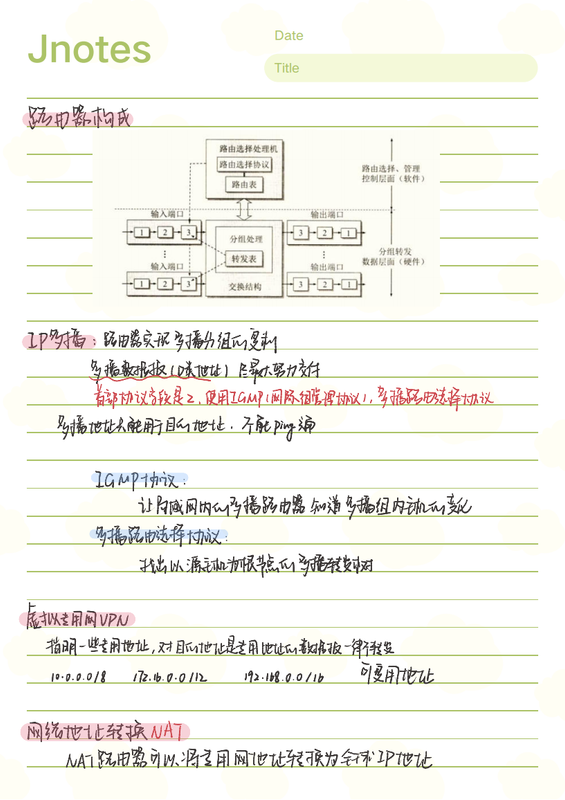 Jnotes
Date
Title
路由器构成
路由选择处理机
路由选择协议
路由表
路由选择、管理
控制层面（软件）
输入端口
输出端口
1 2 3
分组处理
3 2 1
转发表
分组转发
数据层面（硬件）
输入端口
输出端口
1 2 3
交换结构
3 2 1
IP多播：路由器实现多播分组的复制
多播数据报（D类地址）尽最大努力交付
首部协议字段是2、使用IGMP（网际组管理协议）、多播路由选择协议
多播地址只能用于目的地址，不能ping通
IGMP协议：
让局域网内的多播路由器知道多播组内主机的变化
多播路由选择协议：
找出以源主机为根节点的多播转发树
虚拟专用网VPN
指明一些专用地址，对目的地址是专用地址的数据报一律不转发
10.0.0.0/8 172.16.0.0/12 192.168.0.0/16 可复用地址
网络地址转换NAT
NAT路由器可以将专用网地址转换为全球IP地址